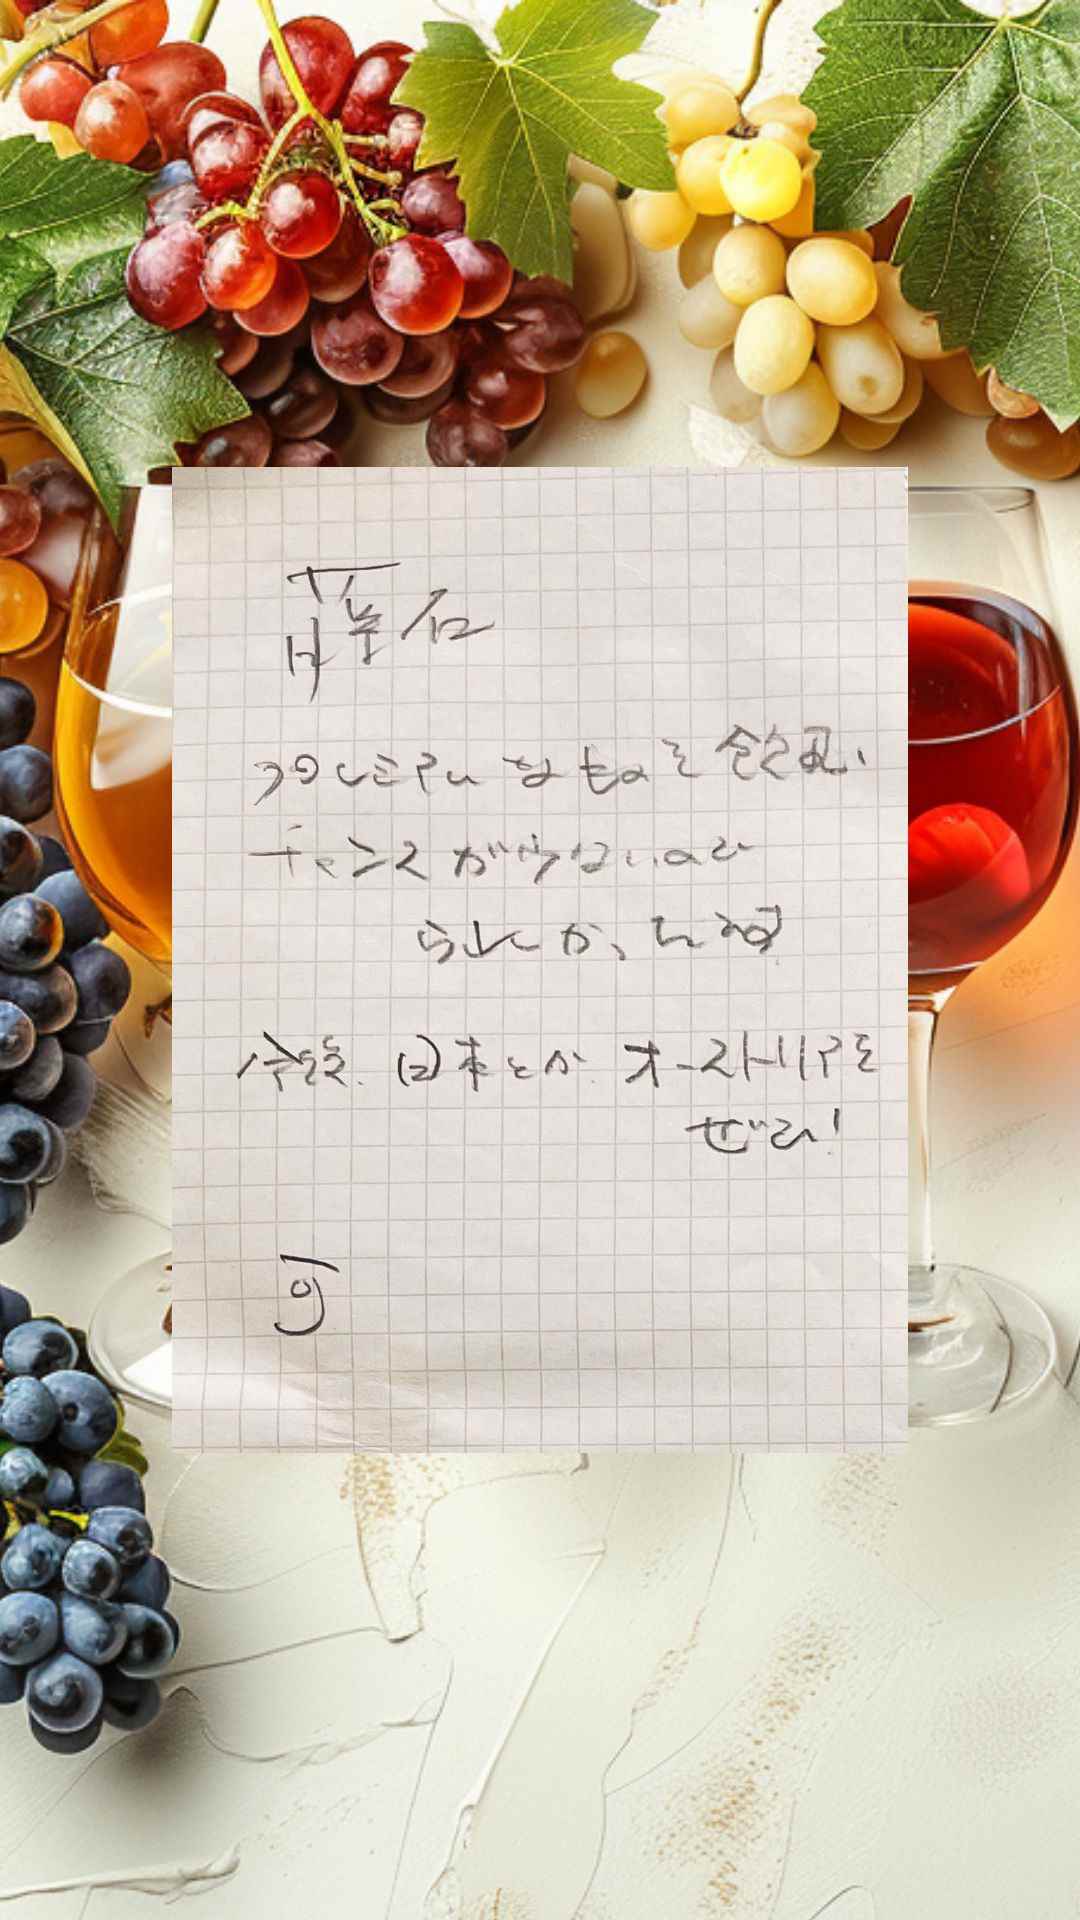 プレミアムなものを飲む
チャンスが少ないので
うれしかった
今後 日本とか オーストリアを
ぜひ!